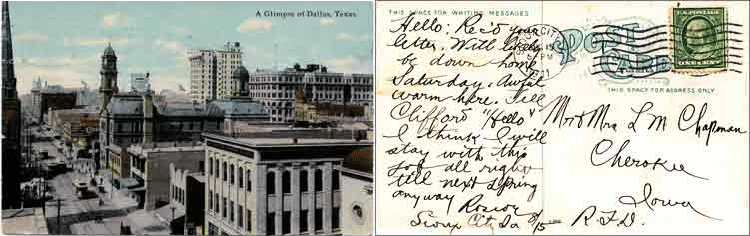 A Glimpse of Dallas, Texas.
THIS SPACE FOR WRITING MESSAGES
POST CARD
THIS SPACE FOR ADDRESS ONLY
Hello: Rec'd your
letter. Will likely
be down home
Saturday. Awful
warm here. Tell
Clifford "Hello"
I think I will
stay with this
job all right
till next spring
anyway Roscoe
Sioux City Ia 8/15
SIOUX CITY
15
PM
1911
U.S. POSTAGE
Mr & Mrs L M Chapman
Cherokee
Iowa
R.F.D.